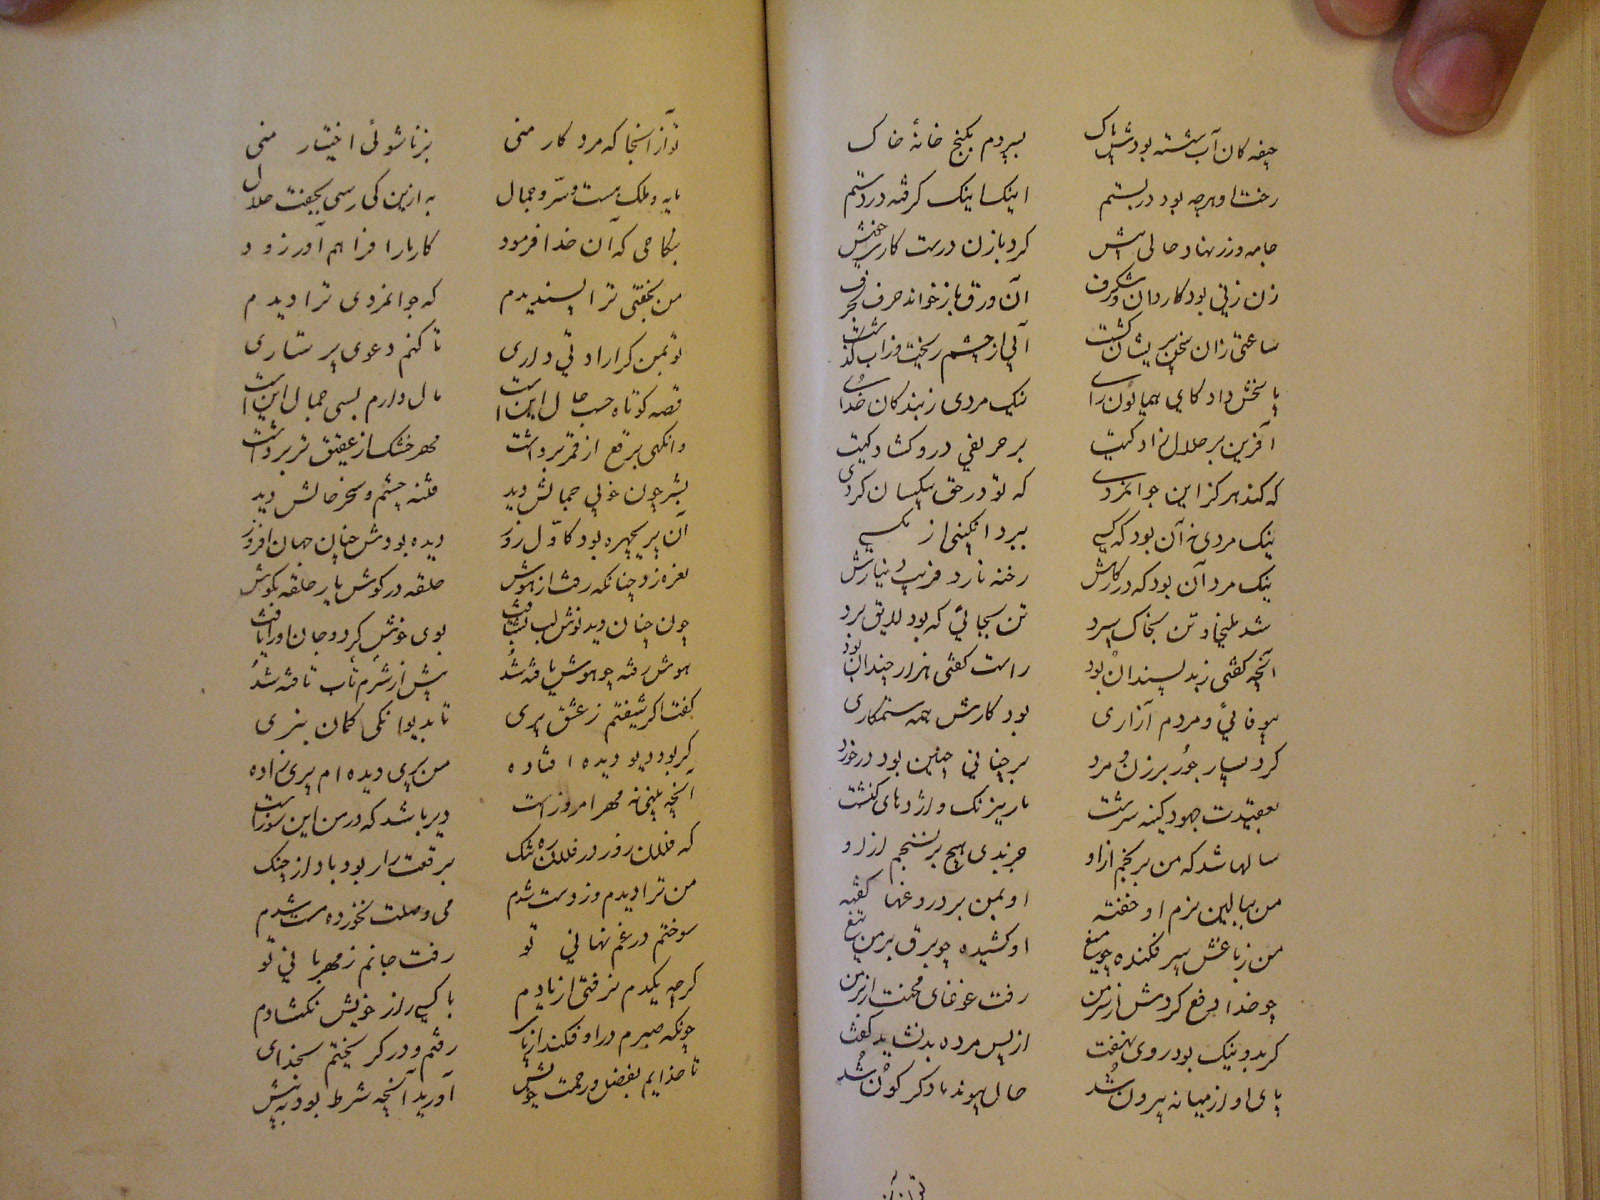 جیفه کان آب شسته بودش پاک بسپردم بکنج خانهٔ خاک
رخت او هرچه بود در بستم اینک اینک گرفته در دستم
جامه و زر نهاد حالی پیش کرد با زن درست کار
زن زنی بود کاردان و شگرف آن ورق باز خواند حرف بحرف
ساعتی زان سخن پریشان گشت آبی از چشم ریخت وز آب گذشت
پاسخش داد کای همایون رای نیک مردی ز بندگان خدای
آفرین بر حلال زادگیت بر حریفی در و گشادگیت
که کند هرگز این جوانمردی که تو در حق بیکسان کردی
نیک مردی نه آن بود که کسی ببرد انگبینی از مگسی
نیک مرد آن بود که در کارش رخنه نارد فریب دینارش
شد ملیخا و تن بخاک سپرد تن بجائی که بود لایق برد
آنچه گفتی ز بد پسندان بود راست گفتی هزار چندان بود
بود کارش همه ستمکاری بیوفائی و مردم آزاری
کرد بسیار جور بر زن و مرد بر چنانی چنین بود در خورد
بعقیدت جهود کینه سرشت مار نیرنگ و اژدهای کنشت
سالها شد که من برنجم از او جز بدی هیچ بر نسنجم از او
من ببالین نرم او خفته او بمن بر دروغها گفته
من ز باغش سپر فکنده چو میغ او کشیده چو برق بر من تیغ
چو خدا دفع کردش از سر من رفت غوغای محنت از بر من
گر بد و نیک بود روی نهفت از پس مرده بد نشاید گفت
پای او از میانه بیرون شد حال پیوند ما دگرگون شد
تو از آنجا که مرد کار منی بزناشوئی اختیار منی
مایه و ملک هست و ستر و جمال به ازین کی رسی بجفت حلال
بنکاحی که آن خدا فرمود کار ما را فراهم آور زود
من بجفتی ترا پسندیدم که جوانمردی ترا دیدم
تو بمن گر ارادتی داری تا کنم دعوی پرستاری
قصه کوتاه حسب حال این است مال دارم بسی جمال این است
وانگهی برقع از قمر برداشت مهر خشک از عقیق تر برداشت
بشر چون خوبی جمالش دید فتنه چشم و سحر خالش دید
آن پریچهره بود کاول روز دیده بودش چنان جهان افروز
نعره زد چنانکه رفت از هوش حلقه در گوش یار حلقه بگوش
چون چنان دید نوش لب بشتافت بوی خوش کرد و جان او را یافت
هوش رفته چو هوش یافته شد پیش از شرم تاب تافته شد
گفت اگر شیفتم ز عشق پری تا بدیوانگی گمان نبری
گر بود دیو دیده افتاده من پری دیده ام پری زاده
آنچه بینی نه مهر امروز است دیر باشد که در من این سوز است
که فلان روز در فلان ره تنگ برقعت را ربود باد از چنگ
من ترا دیدم و ز دست شدم می وصلت نخورده مست شدم
سوختم در غم نهانی تو رفت جانم ز مهربانی تو
گرچه یکدم نرفتی از یادم با کسی راز خویش نگشادم
چونکه صبرم در او فکند از پای رفتم و در گریختم بخدای
تا خدایم بفضل و رحمت خویش آورید آنچه شرط بود به پیش
تو از آن